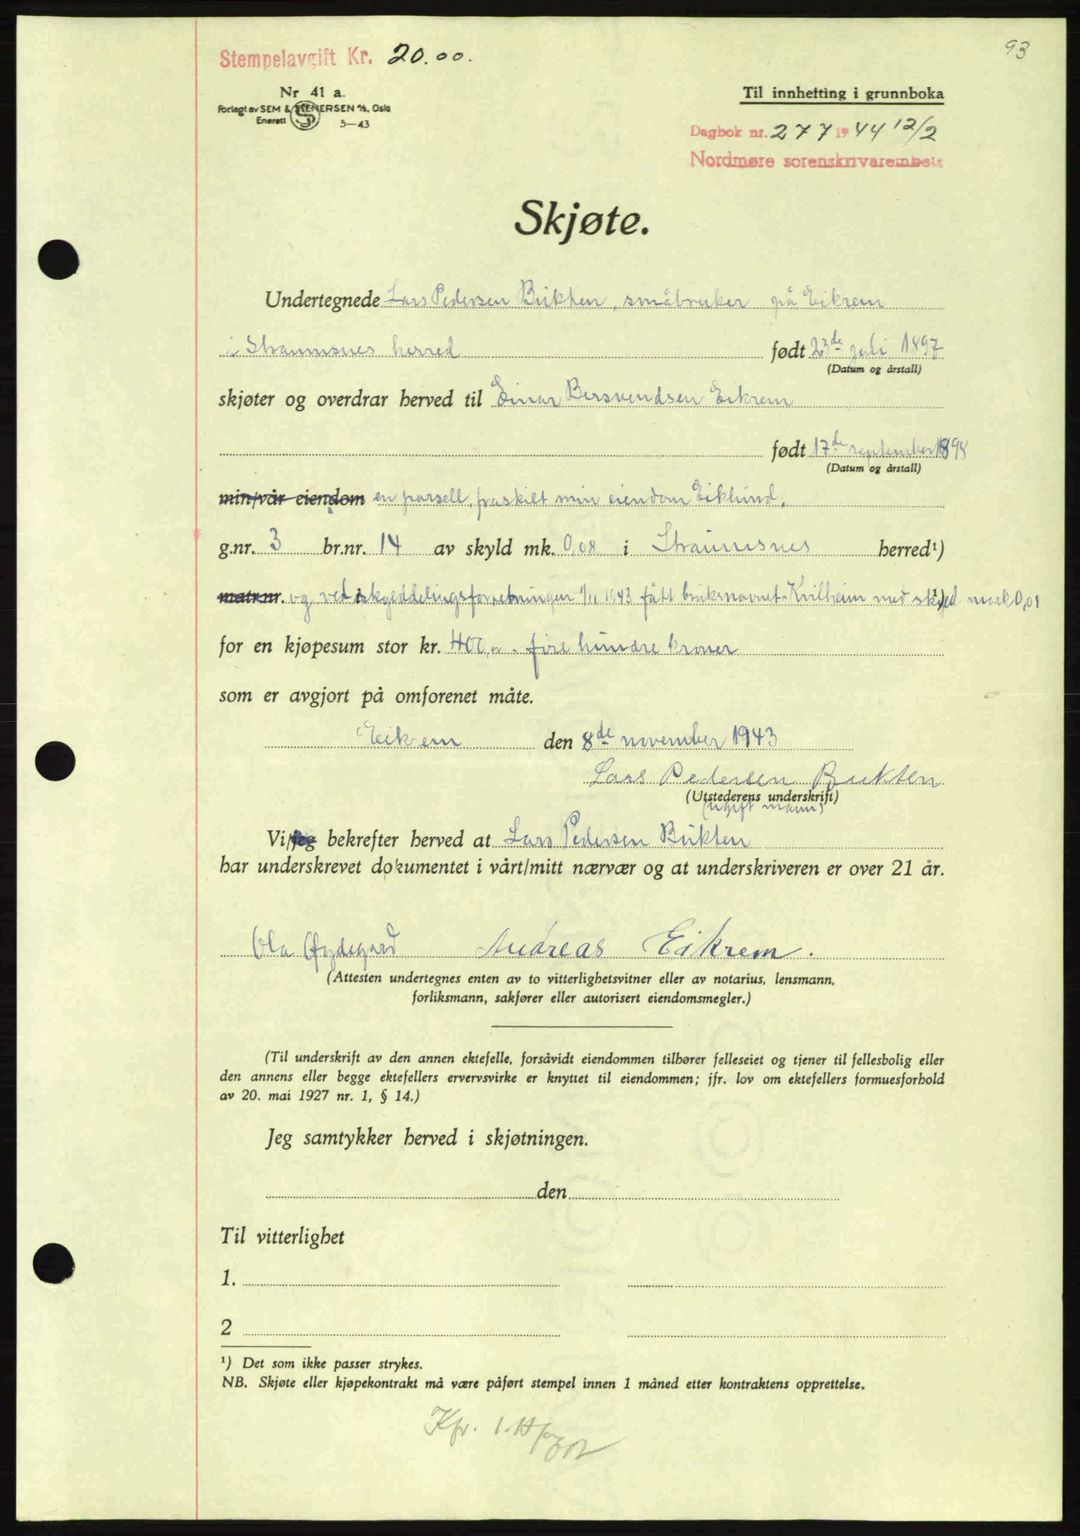 93
Stempelavgift Kr. 20.00.
Nr 41 a.
Forlagt av SEM & STENERSEN A/S, Oslo
Enerett 5—43
Til innhefting i grunnboka
Dagbok nr. 277 1944 12/2
Nordmøre sorenskrivarembete
Skjøte.
Undertegnede Lars Pedersen Bukten, småbruker på Eikrem
i Straumsnes herred født 23de juli 1897
(Datum og årstall)
skjøter og overdrar herved til Einar Bersvendsen Eikrem
født 17de september 1898
(Datum og årstall)
min/vår eiendom en parsell, fraskilt min eiendom Eiklund,
g.nr. 3 br.nr. 14 av skyld mk. 0,08 i Straumsnes herred¹)
matr.nr. og ved skylddelingsforretningen 1/11 1943 fått bruksnavnet Kvilheim med skyld mark 0,01
for en kjøpesum stor kr. 400,- fire hundre kroner
som er avgjort på omforenet måte.
Eikrem den 8de november 1943
Lars Pedersen Bukten
(Utstederens underskrift)
(ugift mann)
Vi/jeg bekrefter herved at Lars Pedersen Bukten
har underskrevet dokumentet i vårt/mitt nærvær og at underskriveren er over 21 år.
Ola Øydegard Andreas Eikrem.
(Attesten undertegnes enten av to vitterlighetsvitner eller av notarius, lensmann,
forliksmann, sakfører eller autorisert eiendomsmegler.)
(Til underskrift av den annen ektefelle, forsåvidt eiendommen tilhører felleseiet og tjener til fellesbolig eller
den annens eller begge ektefellers ervervsvirke er knyttet til eiendommen; jfr. lov om ektefellers formuesforhold
av 20. mai 1927 nr. 1, § 14.)
Jeg samtykker herved i skjøtningen.
den
Til vitterlighet
1.
2
¹) Det som ikke passer strykes.
NB. Skjøte eller kjøpekontrakt må være påført stempel innen 1 måned etter kontraktens opprettelse.
Kfr.